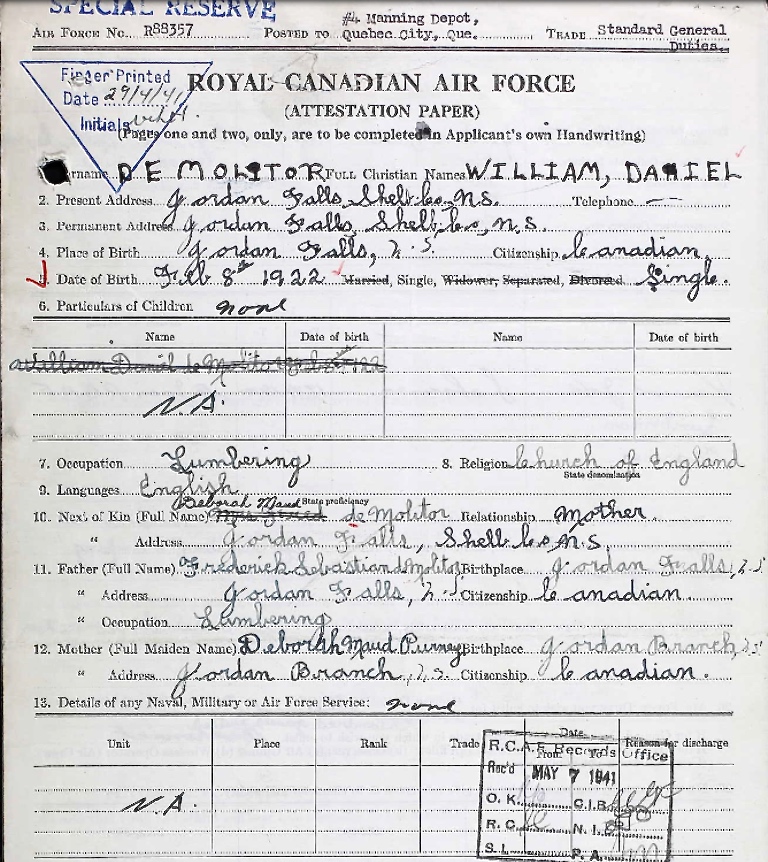 SPECIAL RESERVE
AIR FORCE No. R88357 POSTED TO #4 Manning Depot, Quebec City, Que. TRADE Standard General Duties.
Finger Printed
Date 29/4/41
Initials
ROYAL CANADIAN AIR FORCE
(ATTESTATION PAPER)
(Pages one and two, only, are to be completed in Applicant's own Handwriting)
DE MOLITOR FULL Christian Names WILLIAM, DANIEL
2. Present Address Jordan Falls, Shelb. Co, N.S. Telephone —
3. Permanent Address Jordan Falls, Shelb. Co, N.S.
4. Place of Birth Jordan Falls, N.S. Citizenship Canadian
5. Date of Birth Feb 8th 1922 Married, Single, Widower, Separated, Divorced Single.
6. Particulars of Children none
Name Date of birth Name Date of birth
William Daniel de Molitor Feb 8th 1922
N.A.
7. Occupation Lumbering 8. Religion Church of England
State denomination
9. Languages English
State proficiency
10. Next of Kin (Full Name) Deborah Maud de Molitor Relationship Mother.
" Address Jordan Falls, Shelb. Co N.S.
11. Father (Full Name) Frederick Sebastian deMolitor Birthplace Jordan Falls, N.S
" Address Jordan Falls, N.S. Citizenship Canadian.
" Occupation Lumbering
12. Mother (Full Maiden Name) Deborah Maud Purney Birthplace Jordan Branch, N.S
" Address Jordan Branch, N.S. Citizenship Canadian.
13. Details of any Naval, Military or Air Force Service: none
Unit Place Rank Trade Date From To Reason for discharge
N.A.
R.C.A.F. Records Office
Rec'd MAY 7 1941
O.K. C.I.B.
R.C. N.I.B.
S.I. P.A.